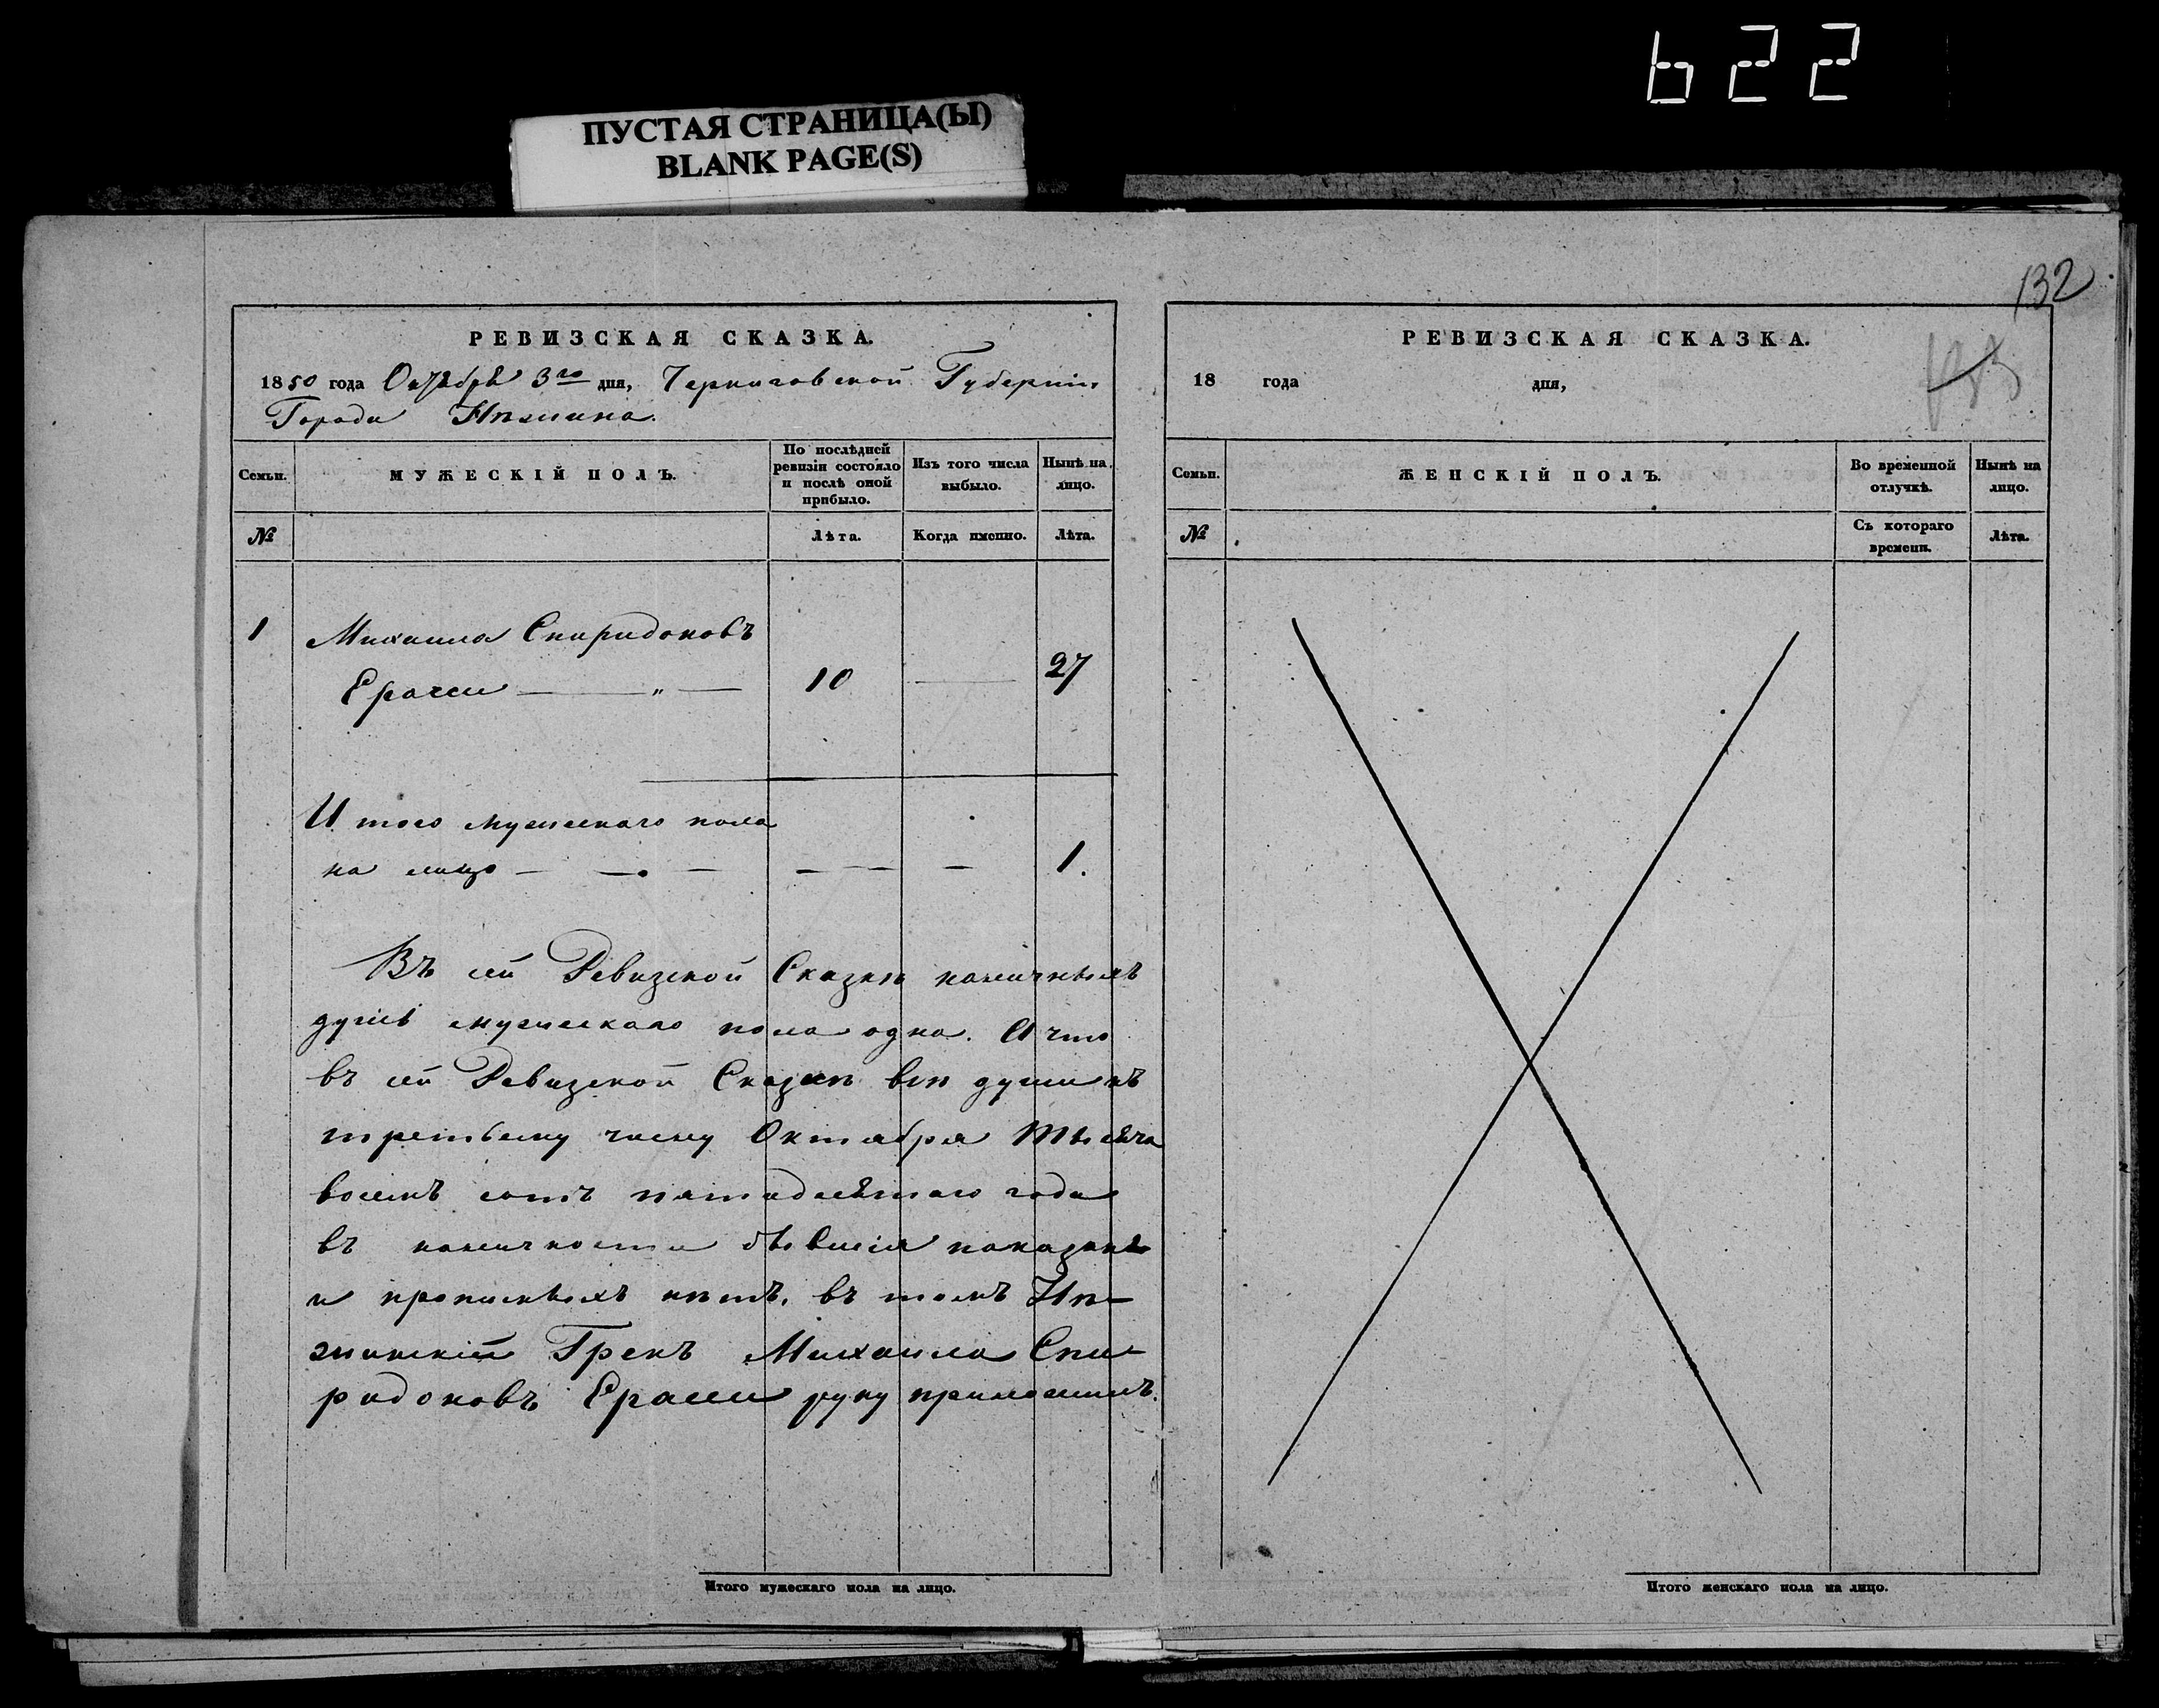 622
ПУСТАЯ СТРАНИЦА(Ы)
BLANK PAGE(S)
132
РЕВИЗСКАЯ СКАЗКА.
1850 года Октября 3го дня, Черниговской Губернии
Города Нѣжина.
Семьи.
МУЖЕСКІЙ ПОЛЪ.
По послѣдней ревизіи состояло и послѣ оной прибыло.
Изъ того числа выбыло.
Нынѣ на лицо.
№
Лѣта.
Когда именно.
Лѣта.
1 Михаила Спиридоновъ
Ераси — „ — 10 — 27
Итого мужескаго пола
на лицо — — — — — — 1.
Въ сей Ревизской Сказкѣ наличныхъ
душъ мужескаго пола одна. А что
въ сей Ревизской Сказкѣ всѣ души къ
третьему числу Октября Тысяча
восемь сотъ пятидесятого года
въ наличности бывшія показаны
и прописныхъ нѣтъ, въ томъ Нѣ-
жинскій Грекъ Михаила Спи-
ридоновъ Ераси руку приложилъ.
Итого мужескаго пола на лицо.
РЕВИЗСКАЯ СКАЗКА.
18 года дня,
Семьи.
ЖЕНСКІЙ ПОЛЪ.
Во временной отлучкѣ.
Нынѣ на лицо.
№
Съ котораго времени.
Лѣта.
Итого женскаго пола на лицо.